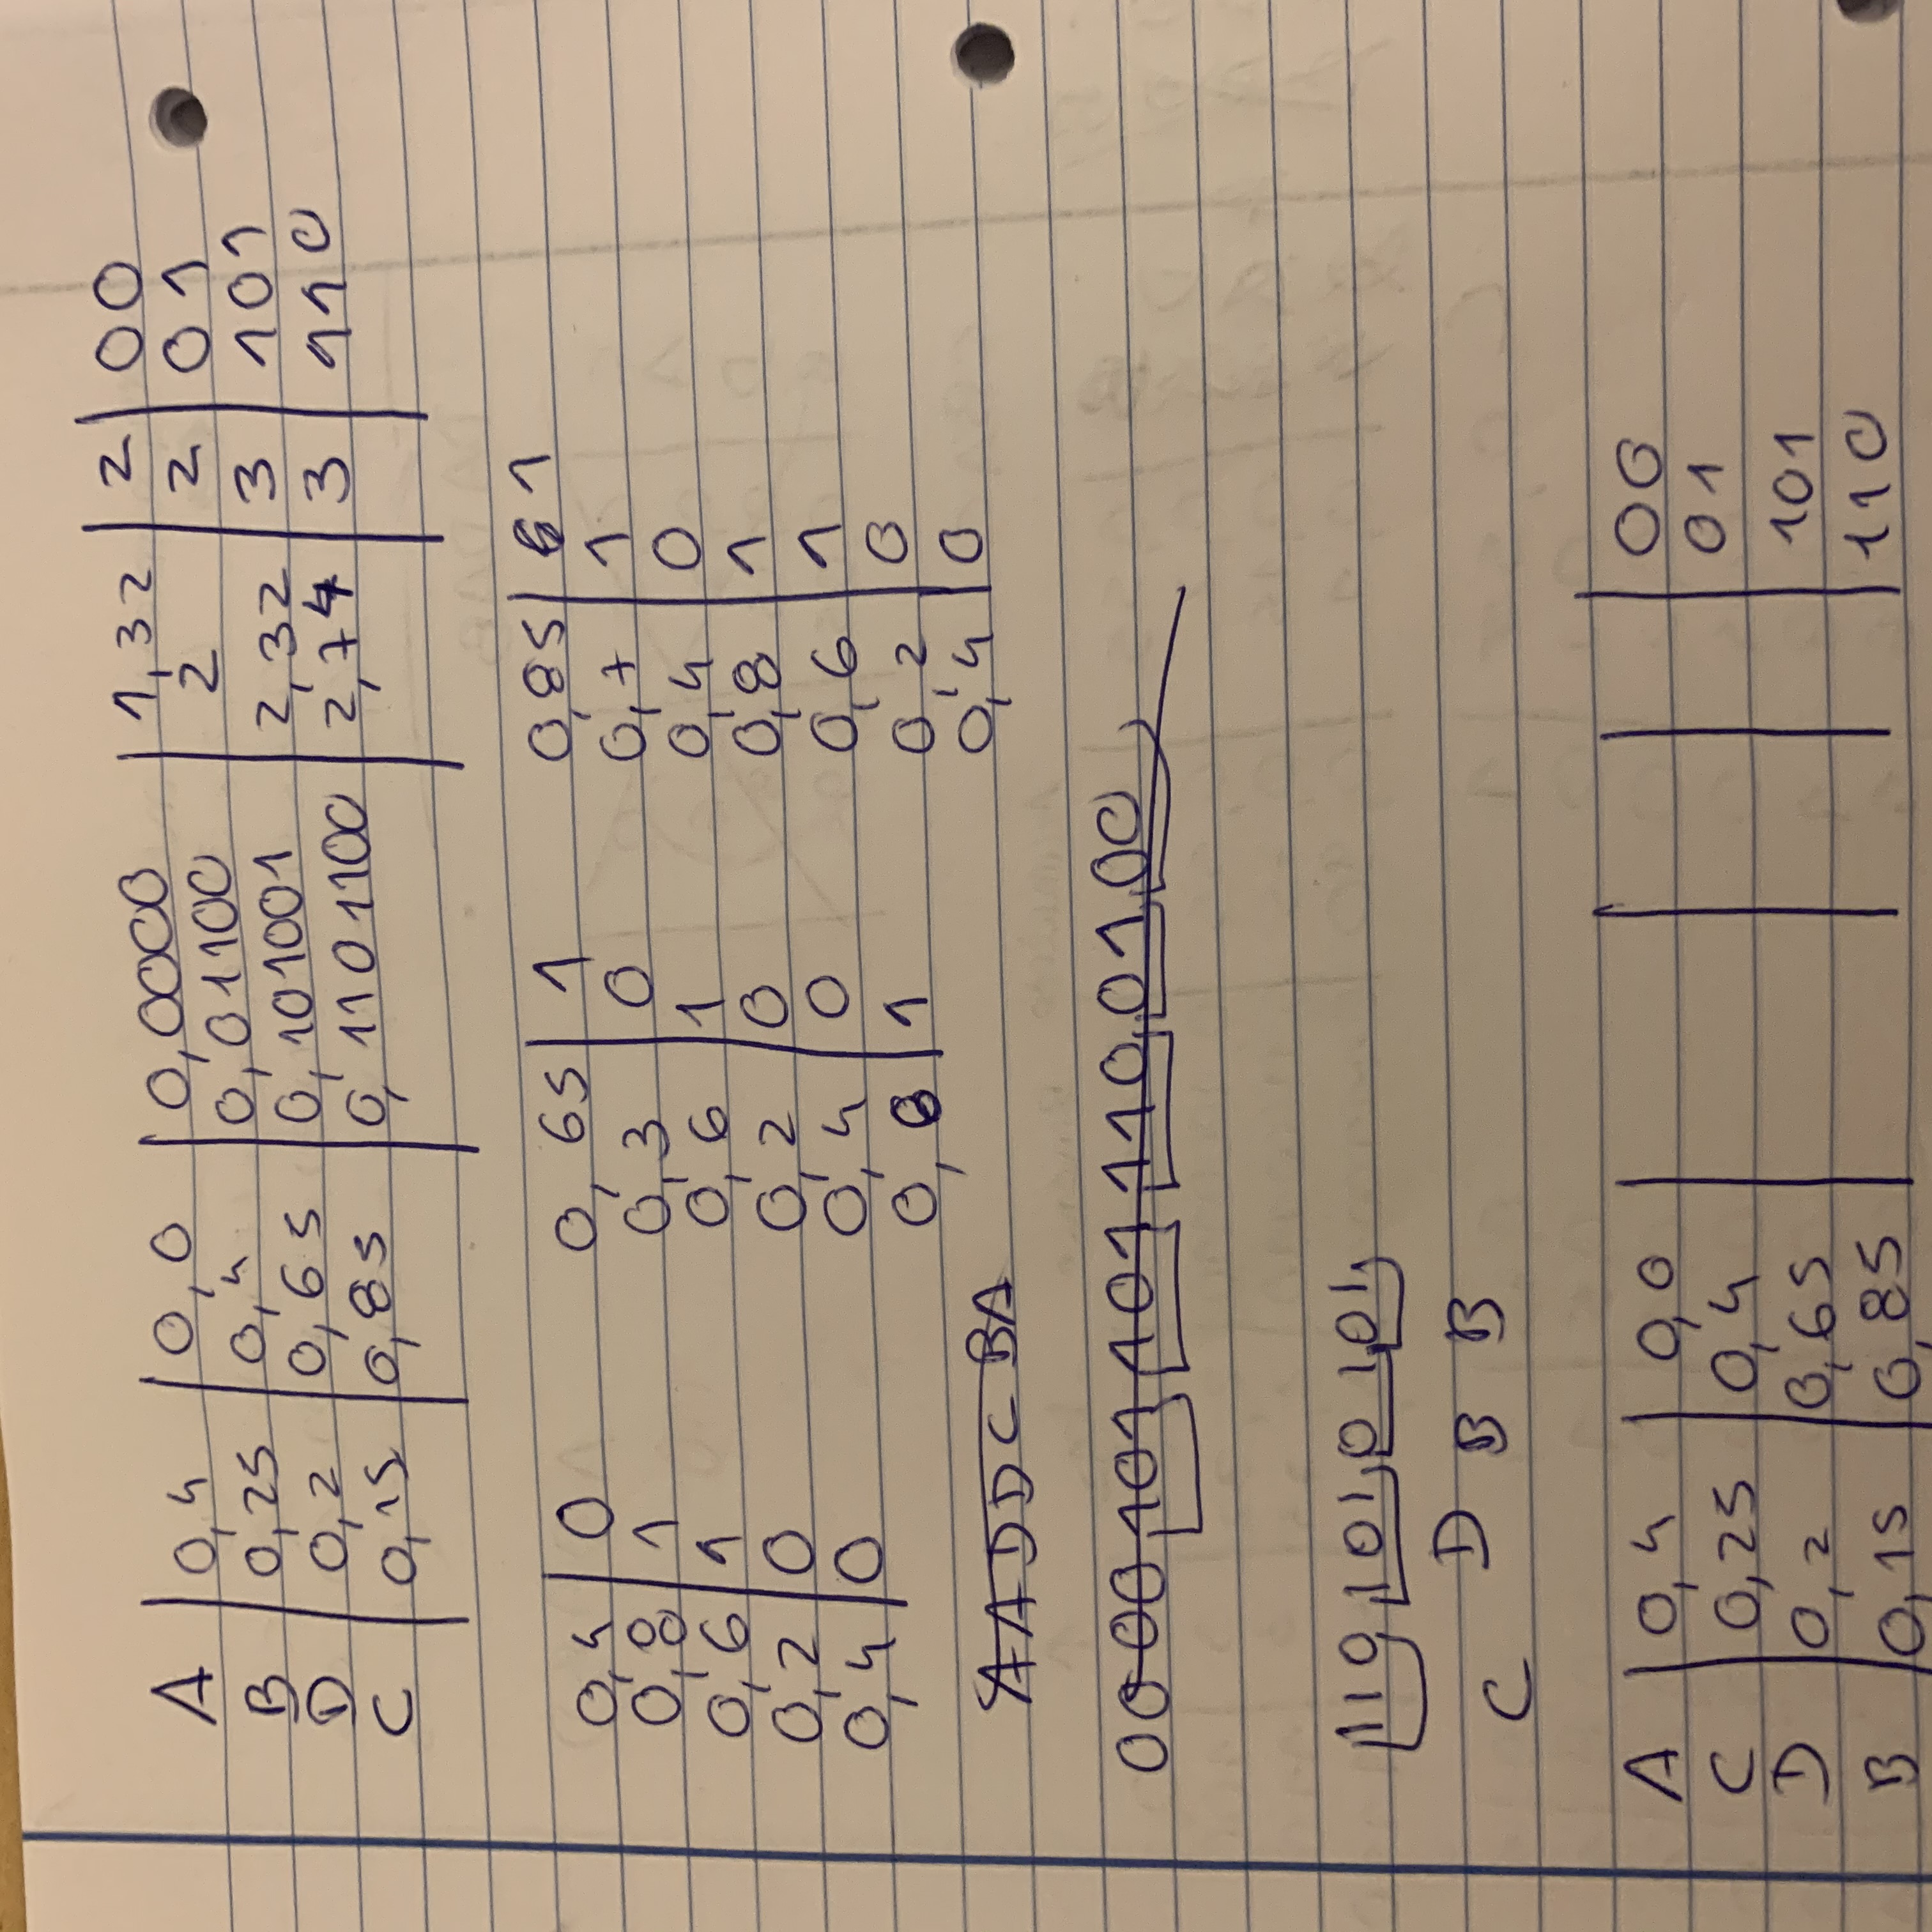 A | 0,4 | 0,0 | 0,0000 | 1,32 | 2 | 00
B | 0,25 | 0,4 | 0,01100 | 2 | 2 | 01
D | 0,2 | 0,65 | 0,101001 | 2,32 | 3 | 101
C | 0,15 | 0,85 | 0,1101100 | 2,74 | 3 | 110
0,4 | 0 0,65 | 1 0,85 | 1
0,8 | 1 0,3 | 0 0,7 | 1
0,6 | 1 0,6 | 1 0,4 | 0
0,2 | 0 0,2 | 0 0,8 | 1
0,4 | 0 0,4 | 0 0,6 | 1
0,8 | 1 0,2 | 0
0,4 | 0
AADDCBA
0000 101 101 110 01 00
110 101 01 01
C D B B
A | 0,4 | 0,0 | | | | 00
C | 0,25 | 0,4 | | | | 01
D | 0,2 | 0,65 | | | | 101
B | 0,15 | 0,85 | | | | 110